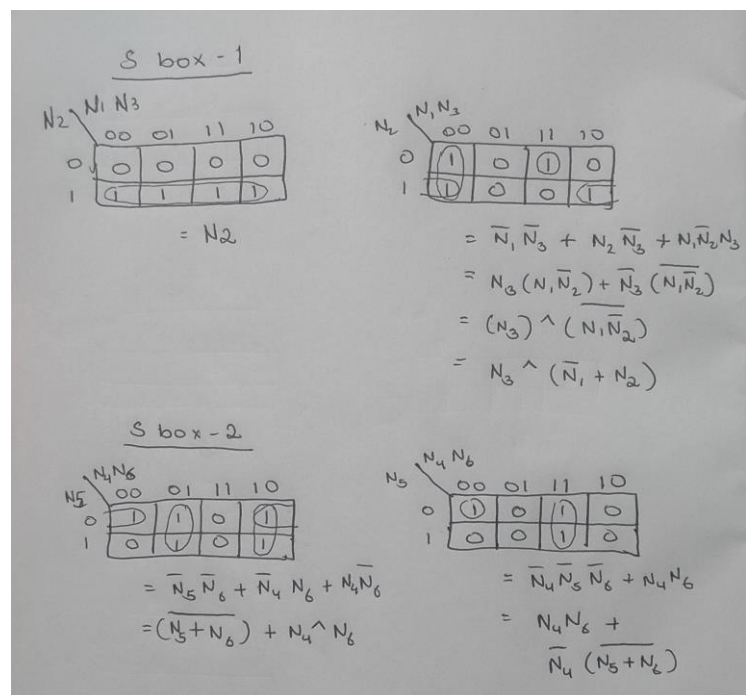 S box-1
N2 N1 N3
00 01 11 10
0 0 0 0 0
1 1 1 1 1
= N2
N₂ N₁N₃
00 01 11 10
0 1 0 1 0
1 1 0 0 1
= N̅₁ N̅₃ + N₂ N̅₃ + N₁N̅₂N₃
= N₃ (N₁N̅₂) + N̅₃ (\overline{N₁N̅₂})
= (N₃) ^ (\overline{N₁N̅₂})
= N₃ ^ (N̅₁ + N₂)
S box-2
N5 N₄N₆
00 01 11 10
0 1 1 0 1
1 0 1 0 1
= N̅₅ N̅₆ + N̅₄ N₆ + N₄N̅₆
= (\overline{N₅+N₆}) + N₄^N₆
N₅ N₄ N₆
00 01 11 10
0 1 0 1 0
1 0 0 1 0
= N̅₄ N̅₅ N̅₆ + N₄N₆
= N₄N₆ +
N̅₄ (\overline{N₅+N₆})